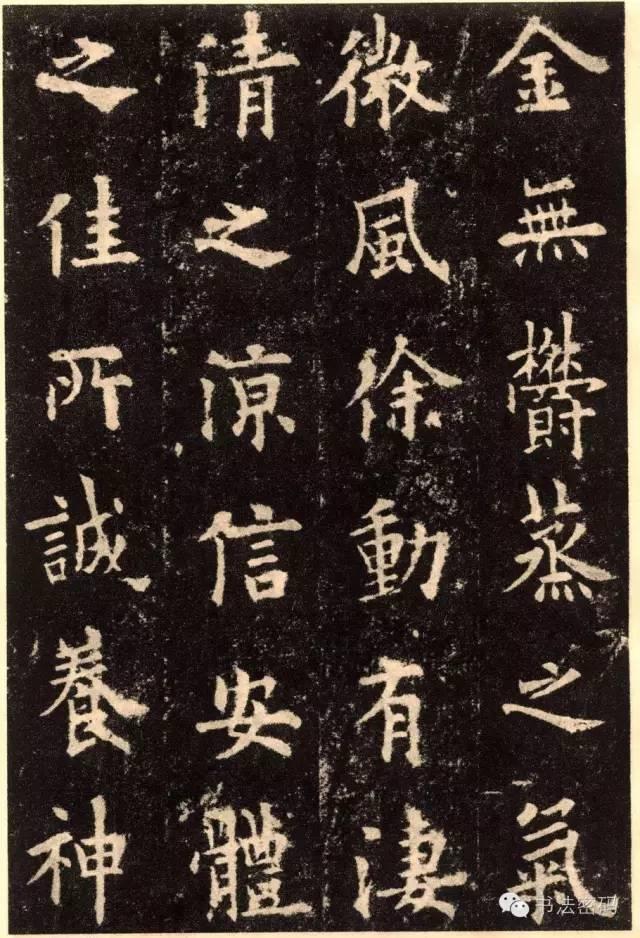 金無欝蒸之氣
微風徐動有淒
清之涼信安體
之佳所誠養神
书法密码